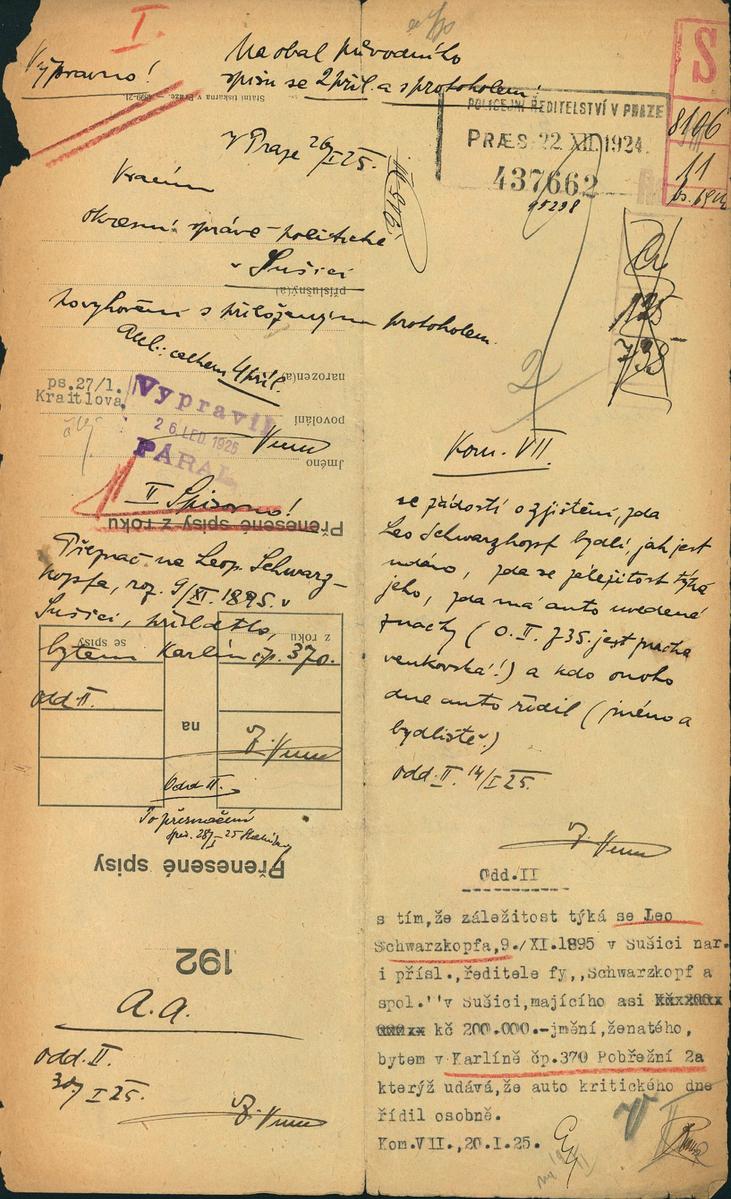 I.
Výpravno!
Na obal původního
spisu se 2 příl. a s protokolem!
Státní tiskárna v Praze.
V Praze 26/I 25.
okresní správě politické
v Sušici
příslušný(a)
po vyhovění s přiloženým protokolem.
celkem 4 příl.
narozen(a)
ps.27/1.
Kraitlova
Vypravil
26.LED.1925
PÁRAL
povolání
Jméno
II Spisovno!
Přenesené spisy z roku
Přepsač na Leop. Schwarz-
kopfa, roz. 9/XI. 1895 v
Sušici, 
se spisy
z roku
bytem Karlín čp. 370.
odd. II.
na
Odd. II.
Po přeznačení
Přenesené spisy
192
A. A.
odd. II.
30/I 25.
S
8106
11
POLICEJNÍ ŘEDITELSTVÍ V PRAZE
PRÆS. 22 XII. 1924
437662
95298
2
Kom. VII.
se žádostí o zjištění, zda
Leo Schwarzkopf bydlí, jak jest
udáno, zda se záležitost týká
jeho, zda má auto uvedené
značky (O. II. 735. jest
venkovská!) a kdo onoho
dne auto řídil (jméno a
bydliště.)
odd. II. 14/I 25.
Odd.II
s tím,že záležitost týká se Leo
Schwarzkopfa,9./XI.1895 v Sušici nar.
i přísl.,ředitele fy,,Schwarzkopf a
spol.'' v Sušici,majícího asi
kč 200.000.-jmění,ženatého,
bytem v Karlíně čp.370 Pobřežní 2a
kterýž udává,že auto kritického dne
řídil osobně.
Kom.VII.,20.I.25.